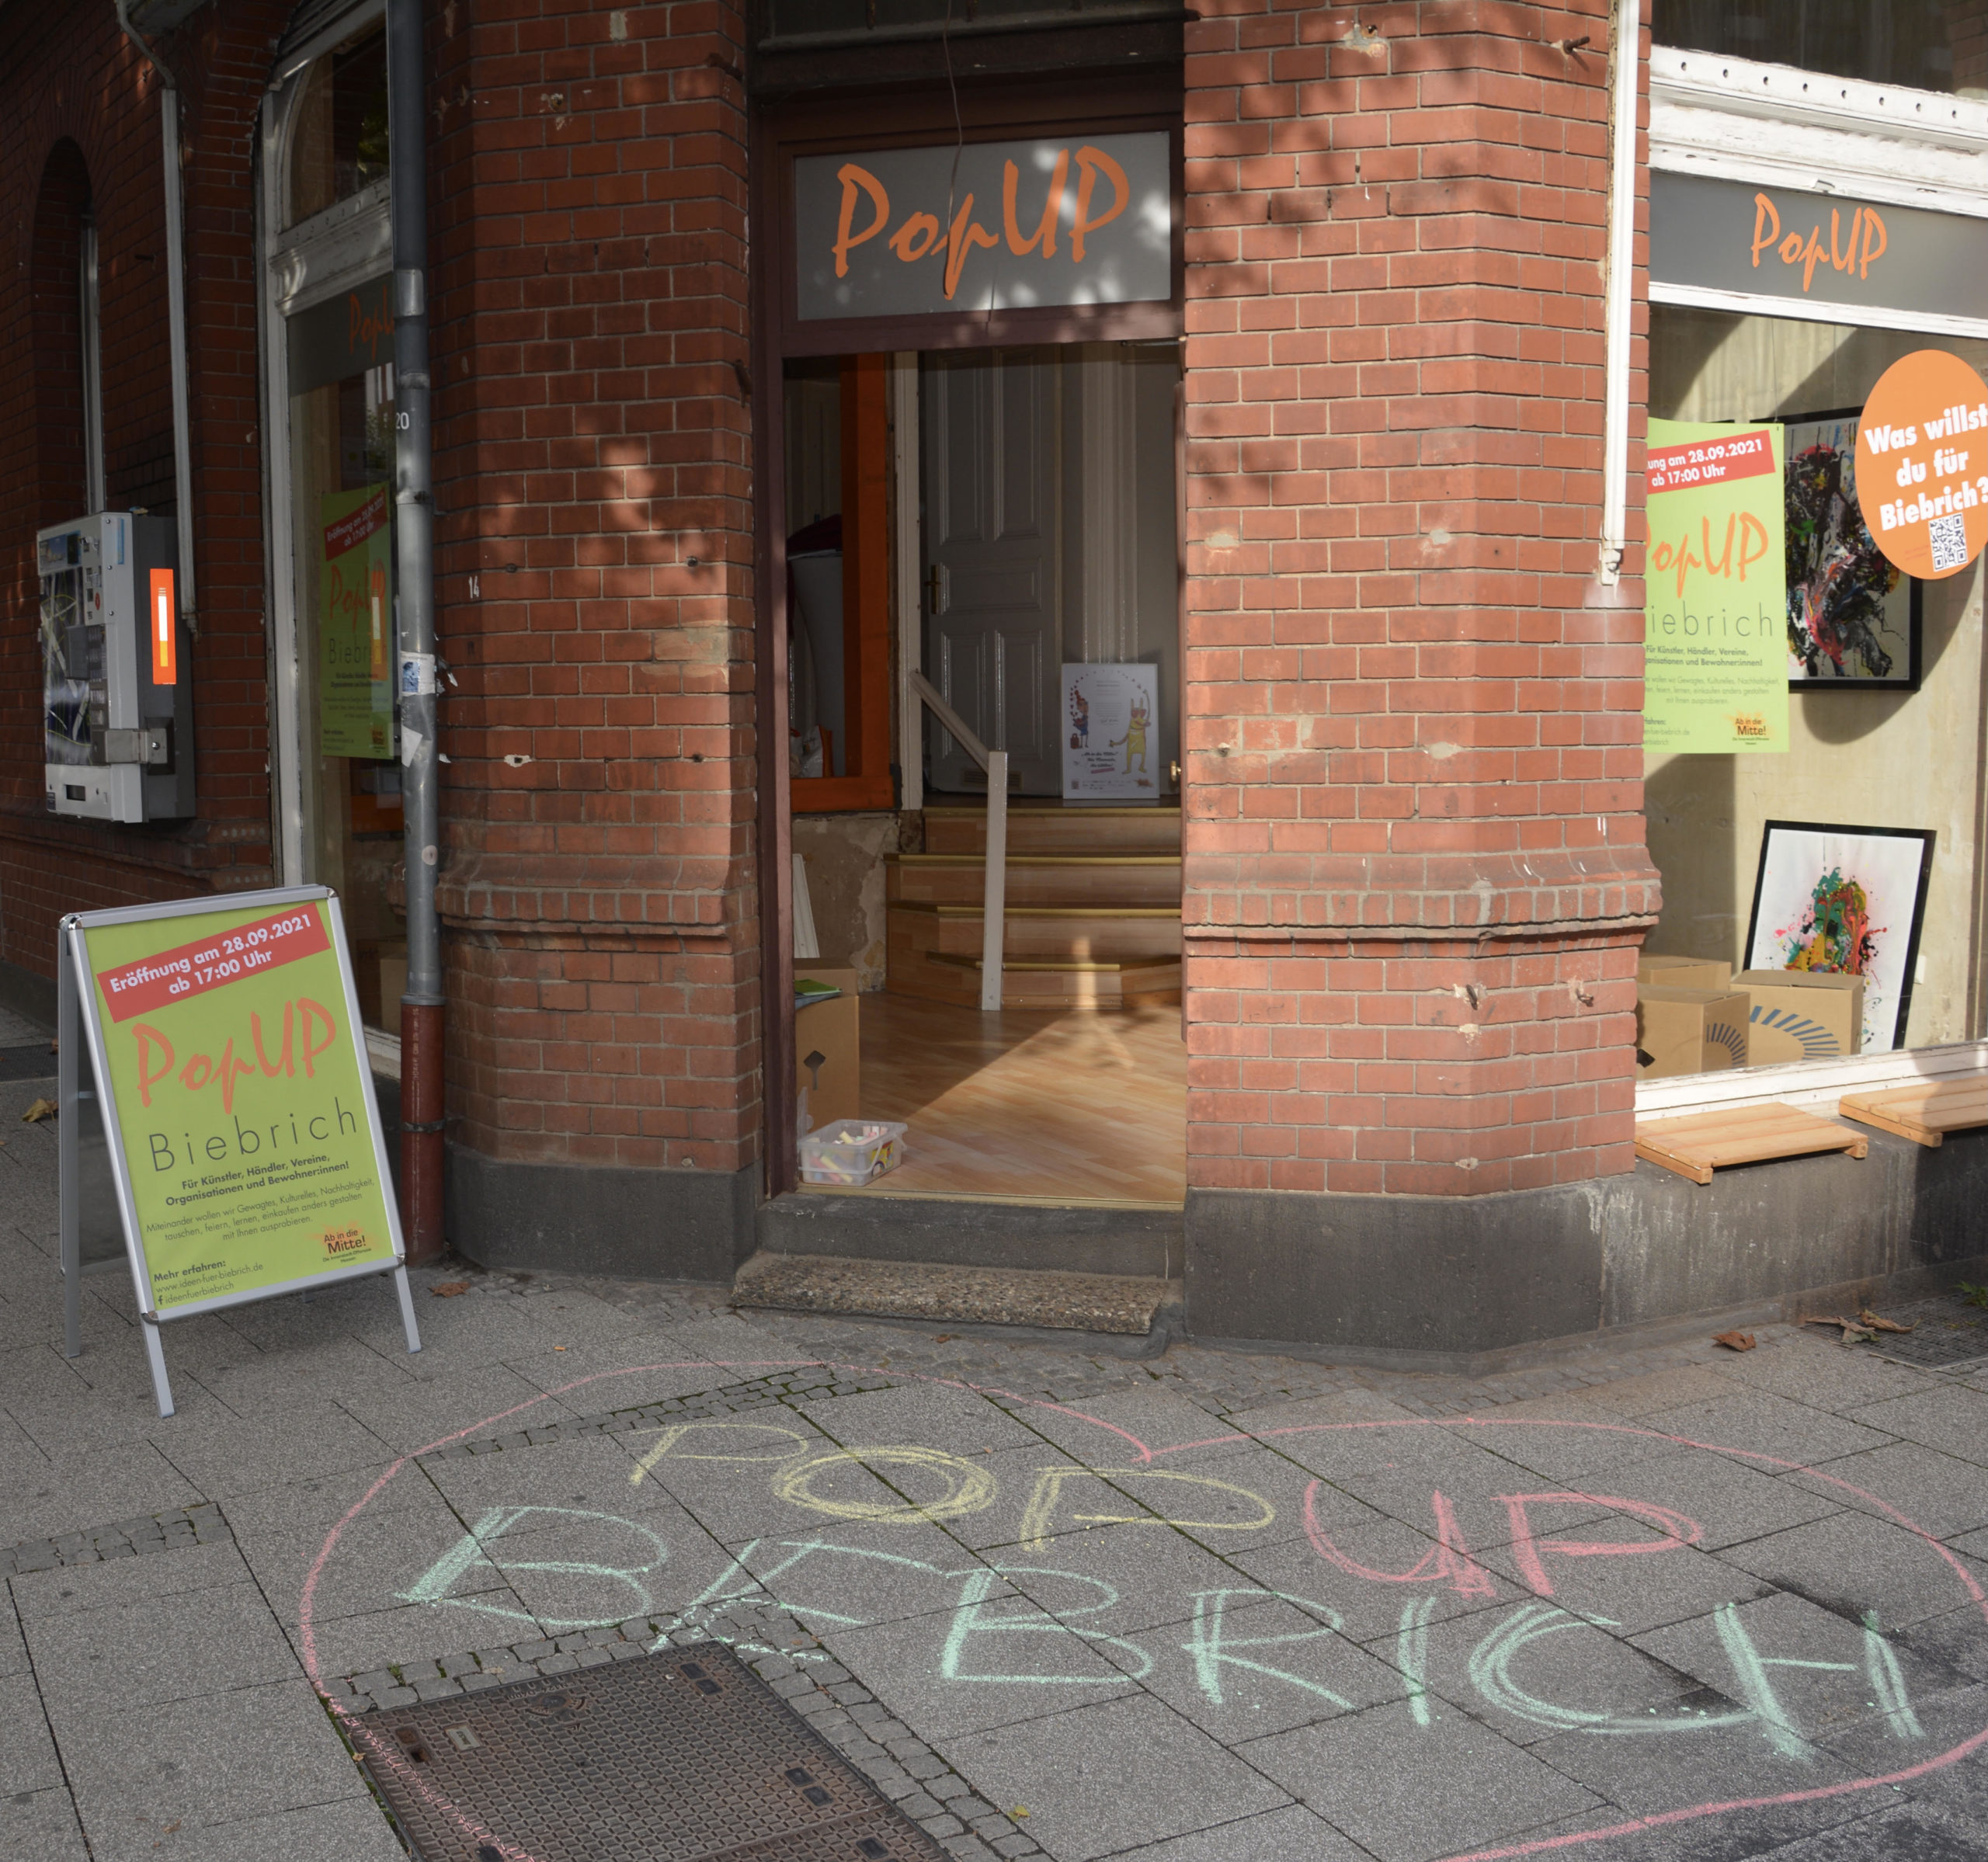 PopUP
PopUP
Was willst
du für
Biebrich?
20
14
Eröffnung am 28.09.2021
ab 17:00 Uhr
PopUP
Biebrich
Für Künstler, Händler, Vereine,
Organisationen und Bewohner:innen!
Miteinander wollen wir Gewagtes, Kulturelles, Nachhaltigkeit,
tauschen, feiern, lernen, einkaufen anders gestalten
mit Ihnen ausprobieren.
Ab in die
Mitte!
Mehr erfahren:
www.ideen-fuer-biebrich.de
ideenfuerbiebrich
ung am 28.09.2021
ab 17:00 Uhr
opUP
iebrich
Für Künstler, Händler, Vereine,
ganisationen und Bewohner:innen!
Ab in die
Mitte!
Eröffnung am 28.09.2021
ab 17:00 Uhr
PopUP
POP UP
BIEBRICH